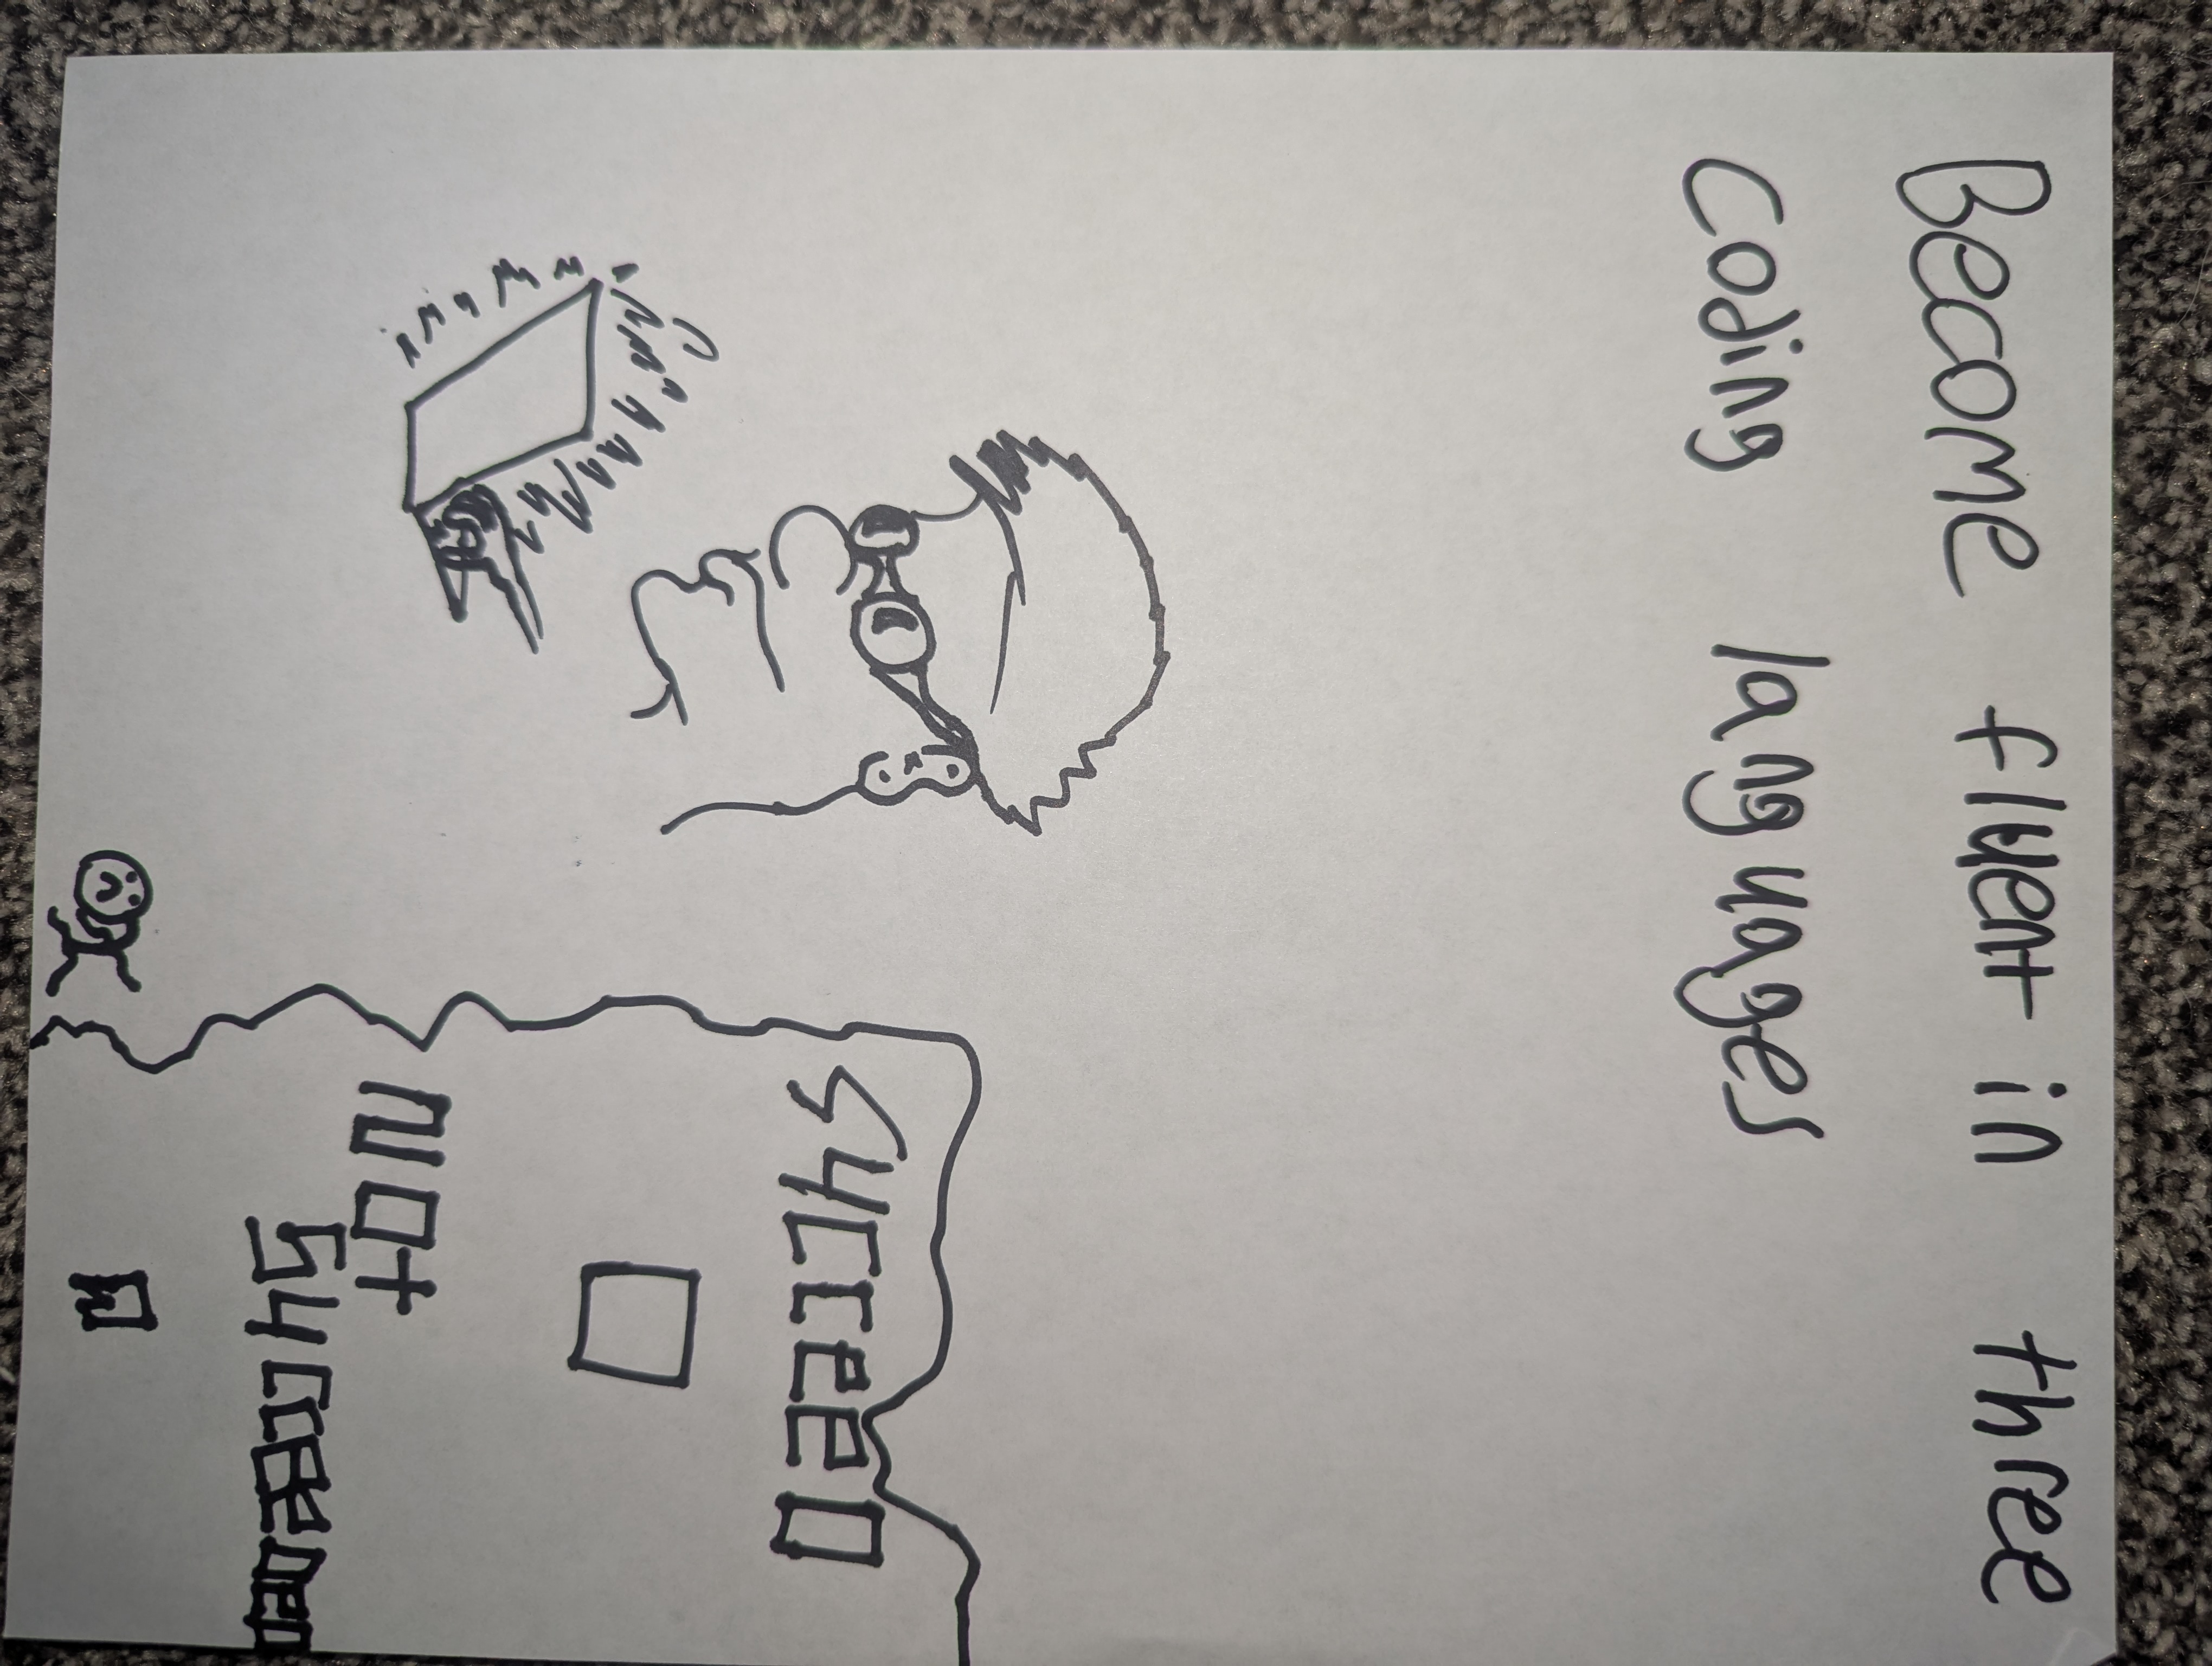 Become fluent in three
coding languages
SUCCEED
NOt
SUCCEEDED